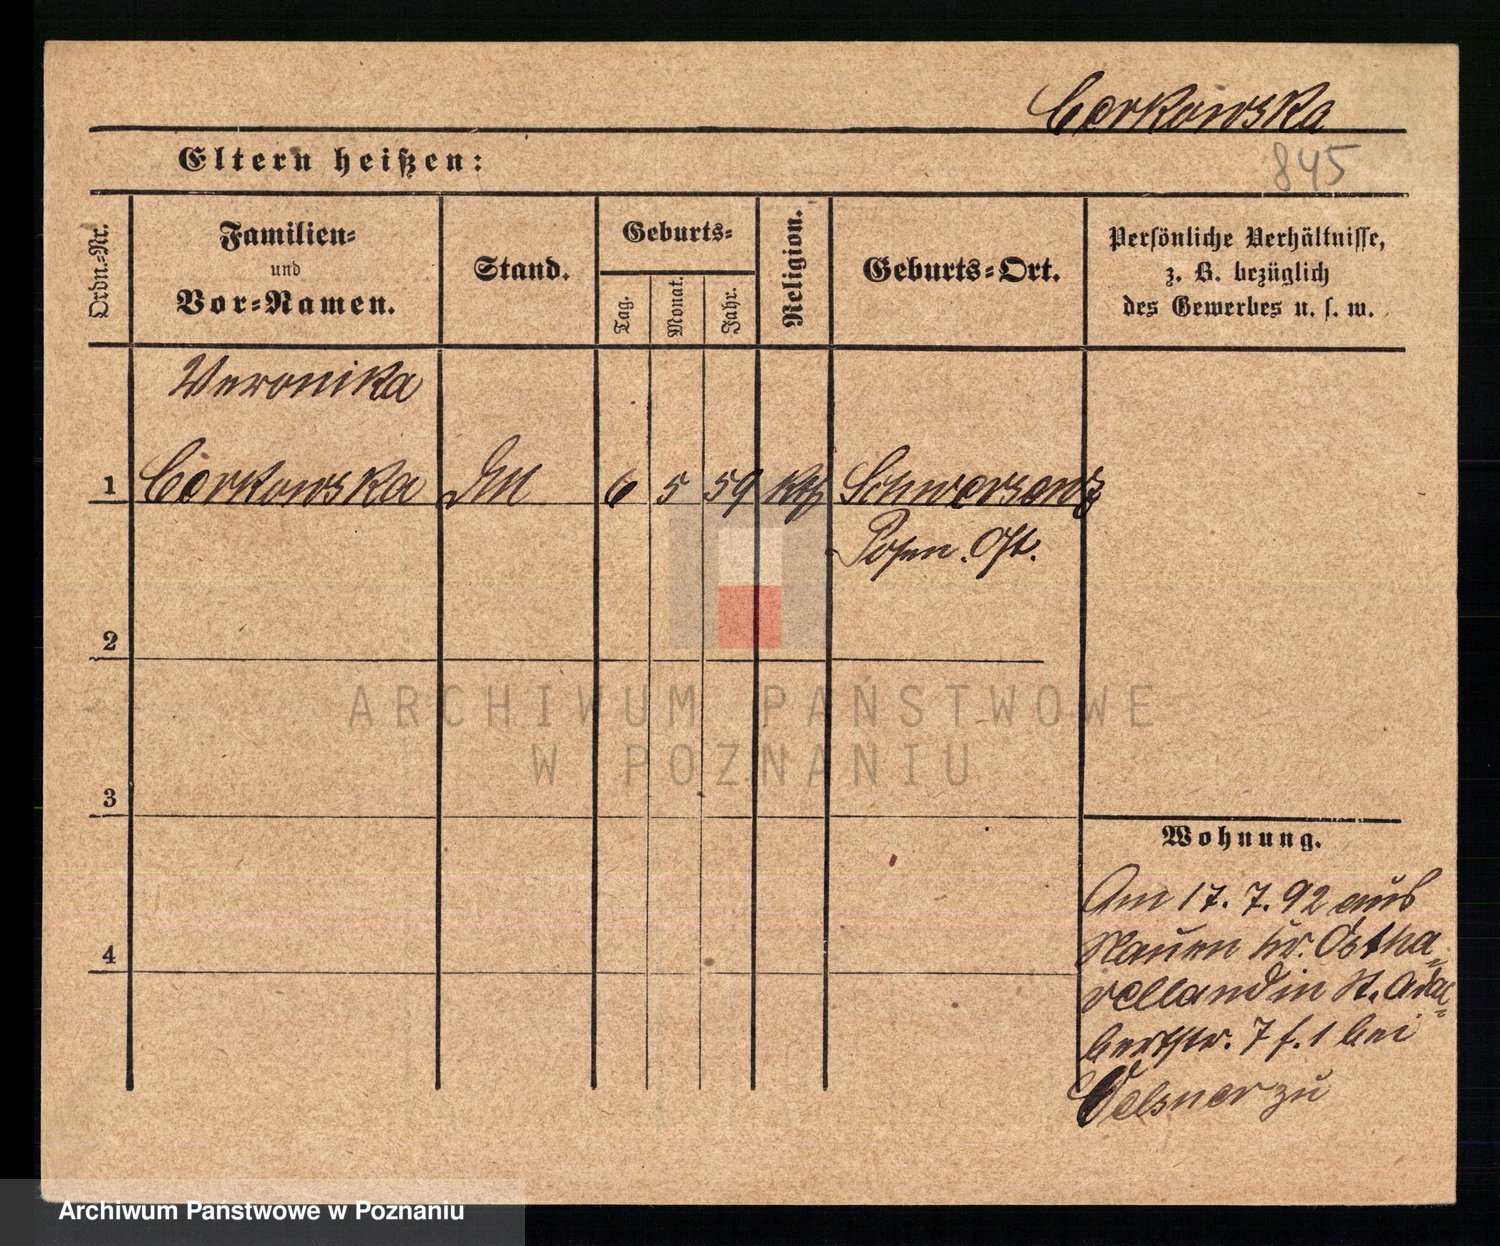 Cerkowska
Eltern heißen:
845
Ordn.-Nr.
Familien-
und
Vor-Namen.
Stand.
Geburts-
Tag.
Monat.
Jahr.
Religion.
Geburts-Ort.
Persönliche Verhältnisse,
z. B. bezüglich
des Gewerbes u. s. w.
Veronika
1 Cerkowska 6 5 59 kth Schwersenz
Posen. Ost.
2
3
4
Wohnung.
Am 17. 7. 92 aus
Nauen Kr. Ostha-
velland in St. Adal-
bertstr. 7 f. 1 bei
Oelsner zu
ARCHIWUM PAŃSTWOWE
W POZNANIU
Archiwum Państwowe w Poznaniu